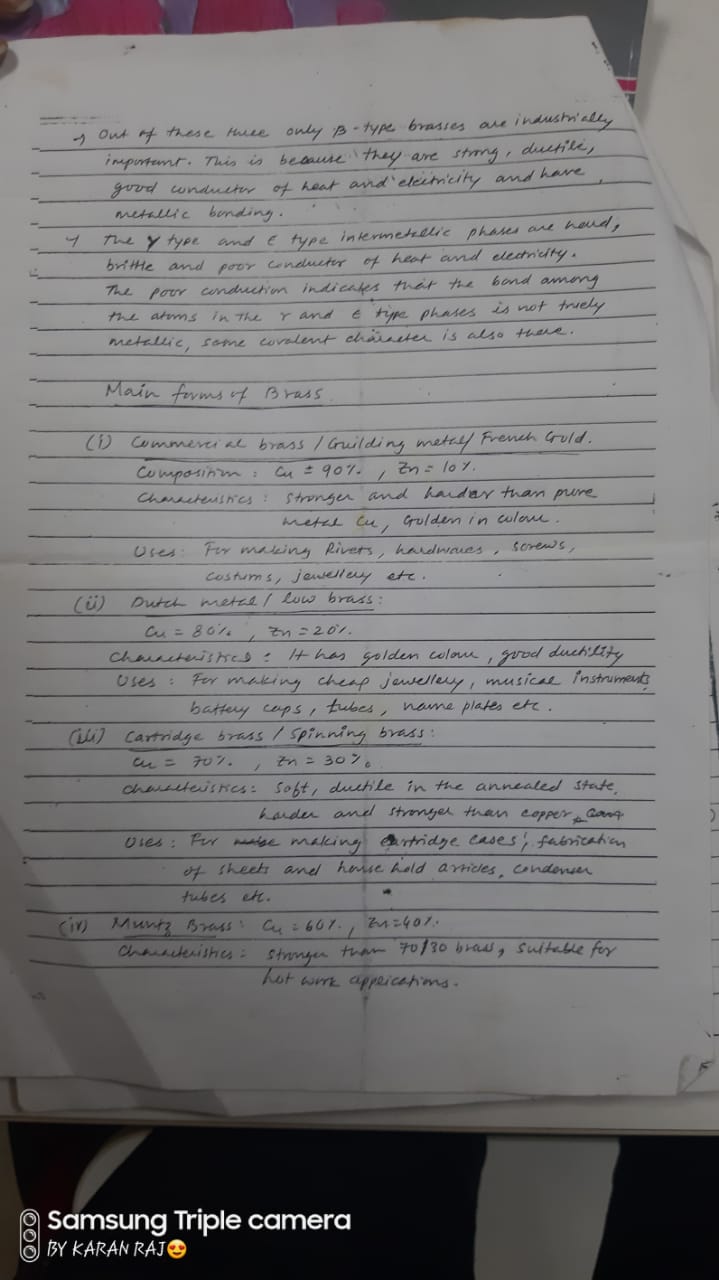 → Out of these three only β-type brasses are industrially
important. This is because they are strong, ductile,
good conductor of heat and electricity and have
metallic bonding.
→ The γ type and ε type intermetallic phases are hard,
brittle and poor conductor of heat and electricity.
The poor conduction indicates that the bond among
the atoms in the γ and ε type phases is not truely
metallic, some covalent character is also there.
Main forms of Brass
(i) Commercial brass / Guilding metal / French Gold.
Composition : Cu = 90%. , Zn = 10%.
Characteristics : Stronger and harder than pure
metal Cu, Golden in colour.
Uses: For making Rivets, hardwares, screws,
costums, jewellery etc.
(ii) Dutch metal / low brass:
Cu = 80%. , Zn = 20%.
Characteristics : It has golden colour, good ductility
Uses : For making cheap jewellery, musical instruments
battery caps, tubes, name plates etc.
(iii) Cartridge brass / Spinning brass:
Cu = 70%. , Zn = 30%.
Characteristics: Soft, ductile in the annealed state,
harder and stronger than copper
Uses : For making cartridge cases, fabrication
of sheets and house hold articles, condenser
tubes etc.
(iv) Muntz Brass: Cu = 60%. , Zn = 40%.
Characteristics: Stronger than 70/30 brass, suitable for
hot work applications.
Samsung Triple camera
BY KARAN RAJ😍